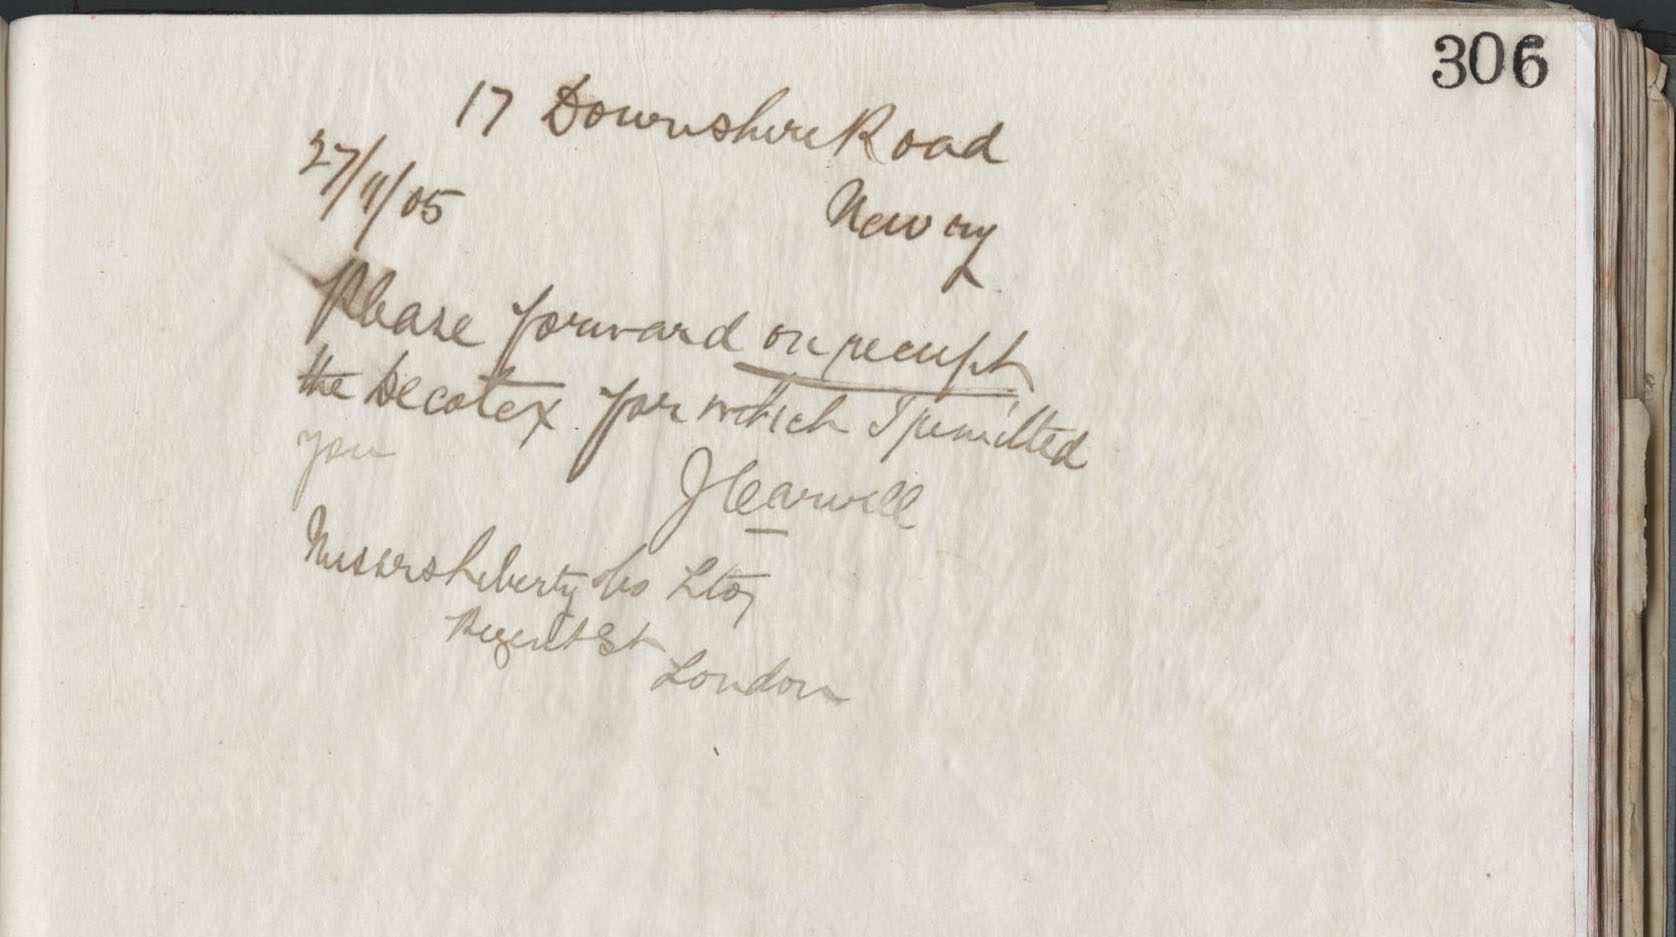 306
17 Downshire Road
27/11/05
Newry
Please forward on receipt
the Decotex for which I remitted
you
J Carvill
Messrs Liberty & Co Ltd
Regent St
London